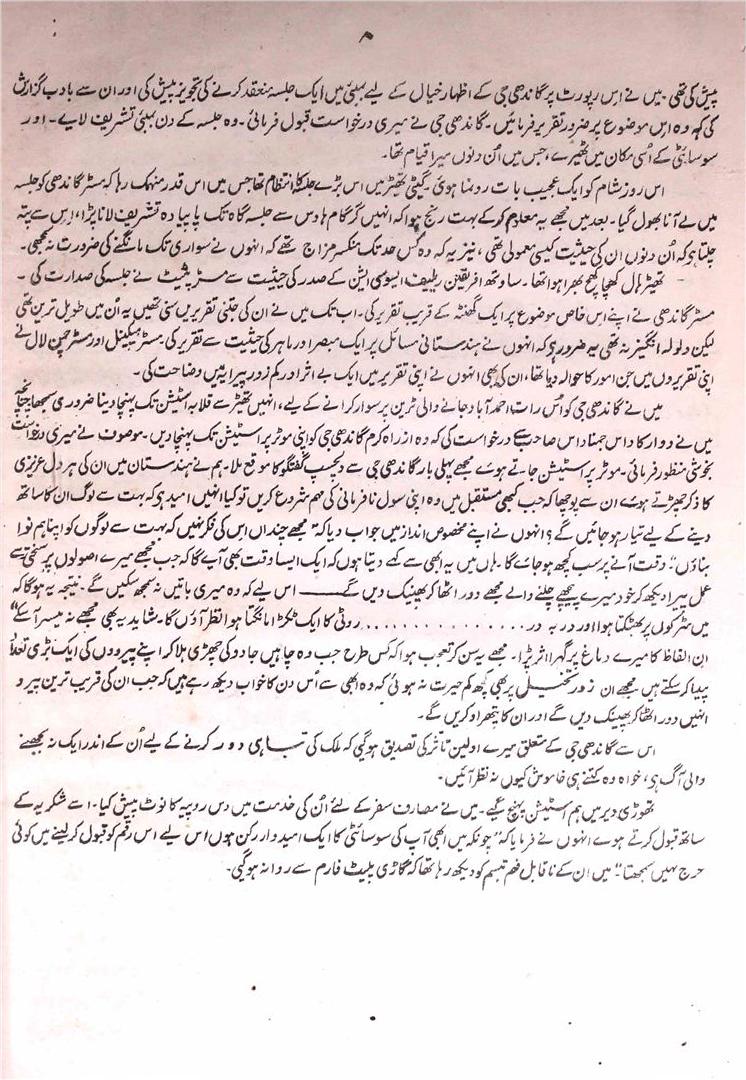 ۸
پیش کی تھی۔ میں نے اس رپورٹ پر گاندھی جی کے اظہار خیال کے لیے بمبئی میں ایک جلسہ منعقد کرنے کی تجویز پیش کی اور ان سے بادب گزارش
کی کہ وہ اس موضوع پر ضرور تقریر فرمائیں۔ گاندھی جی نے میری درخواست قبول فرمائی۔ وہ جلسہ کے دن بمبئی تشریف لاے۔ اور
سوسائٹی کے اُسی مکان میں ٹھیرے، جس میں اُن دنوں میرا قیام تھا۔
اس روز شام کو ایک عجیب بات رونما ہوئی۔ گیٹی تھیٹر میں اس بڑے جلسہ کا انتظام تھا جس میں اس قدر منہمک رہا کہ مسٹر گاندھی کو جلسہ
میں لے آنا بھول گیا۔ بعد میں مجھے یہ معلوم کر کے بہت رنج ہوا کہ انہیں گرگام ہاوس سے جلسہ گاہ تک پاپیادہ تشریف لانا پڑا، اِس سے پتہ
چلتا ہو کہ اُن دنوں ان کی حیثیت کیسی معمولی تھی، نیز یہ کہ وہ کس حد تک منکسر مزاج تھے کہ انہوں نے سواری تک مانگنے کی ضرورت نہ سمجھی۔
تھیٹر ہال کھچا کھچ بھرا ہوا تھا۔ ساوتھ افریقین ریلیف ایسوسی ایشن کے صدر کی حیثیت سے مسٹر پٹیٹ نے جلسہ کی صدارت کی۔
مسٹر گاندھی نے اپنے اس خاص موضوع پر ایک گھنٹہ کے قریب تقریر کی۔ اب تک میں نے ان کی جتنی تقریریں سنی تھیں یہ اُن میں طویل ترین تھی
لیکن ولولہ انگیز نہ تھی یہ ضرور ہی کہ انہوں نے ہندستانی مسائل پر ایک مبصر اور ماہر کی حیثیت سے تقریر کی۔ مسٹر ہیکپنل اور مسٹر چمن لال نے
اپنی تقریروں میں جن امور کا حوالہ دیا تھا، ان کی بھی انہوں نے اپنی تقریر میں ایک بے اثر اور کمزور پیرایہ میں وضاحت کی۔
میں نے گاندھی جی کو اُس رات احمدآباد جانے والی ٹرین پر سوار کرانے کے لیے، انہیں تھیٹر سے قلابہ اسٹیشن تک پہنچا دینا ضروری سمجھا چنانچہ
میں نے دوارکا داس جمناداس صاحب سے درخواست کی کہ وہ ازراہ کرم گاندھی جی کو اپنی موٹر پر اسٹیشن تک پہنچا دیں۔ موصوف نے میری درخواست
بخوشی منظور فرمائی۔ موٹر پر اسٹیشن جاتے ہوے مجھے پہلی بار گاندھی جی سے دلچسپ گفتگو کا موقع ملا۔ ہم نے ہندستان میں ان کی ہر دل عزیزی
کا ذکر چھیڑتے ہوے ان سے پوچھا کہ جب کبھی مستقبل میں وہ اپنی سول نافرمانی کی مہم شروع کریں تو کیا انہیں امید ہو کہ بہت سے لوگ ان کا ساتھ
دینے کے لیے تیار ہو جائیں گے؟ انہوں نے اپنے مخصوص انداز میں جواب دیا کہ ”مجھے چنداں اس کی فکر نہیں کہ بہت سے لوگوں کو اپنا ہم نوا
بناؤں“۔ وقت آنے پر سب کچھ ہو جائے گا۔ ہاں میں یہ ابھی سے کہے دیتا ہوں کہ ایک ایسا وقت بھی آے گا کہ جب مجھے میرے اصولوں پر سختی سے
عمل پیرا دیکھ کر خود میرے پیچھے چلنے والے مجھے دور اٹھا کر پھینک دیں گے——— اس لیے کہ وہ میری باتیں نہ سمجھ سکیں گے۔ نتیجہ یہ ہوگا کہ
میں سڑکوں پر بھٹکتا ہوا اور در بہ در............... روٹی کا ایک ٹکڑا مانگتا ہوا نظر آؤں گا۔ شاید یہ بھی مجھے نہ میسر آسکے“
ان الفاظ کا میرے دماغ پر گہرا اثر پڑا۔ مجھے یہ سن کر تعجب ہوا کہ کس طرح جب وہ چاہیں جادو کی چھڑی ہلا کر اپنے پیرووں کی ایک بڑی تعداد
پیدا کر سکتے ہیں۔ مجھے ان زور تخئیل پر بھی کچھ کم حیرت نہ ہوئی کہ وہ ابھی سے اُس دن کا خواب دیکھ رہے ہیں کہ جب ان کی قریب ترین پیرو
انہیں دور اٹھا کر پھینک دیں گے اور ان کا پتھراو کریں گے۔
اس سے گاندھی جی کے متعلق میرے اولین تاثر کی تصدیق ہوگئی کہ ملک کی تباہی دور کرنے کے لیے اُن کے اندر ایک نہ بجھنے
والی آگ ہی، خواہ وہ کتنے ہی خاموش کیوں نہ نظر آئیں۔
تھوڑی دیر میں ہم اسٹیشن پہنچ گئے۔ میں نے مصارف سفر کے لئے اُن کی خدمت میں دس روپیہ کا نوٹ پیش کیا۔ اسے شکریہ کے
ساتھ قبول کرتے ہوے انہوں نے فرمایا کہ ”چونکہ میں ابھی آپ کی سوسائٹی کا ایک امیدوار رکن ہوں اس لیے اس رقم کو قبول کر لینے میں کوئی
حرج نہیں سمجھتا“۔ میں ان کے ناقابل فہم تبسم کو دیکھ رہا تھا کہ گاڑی پلیٹ فارم سے روانہ ہوگئی۔